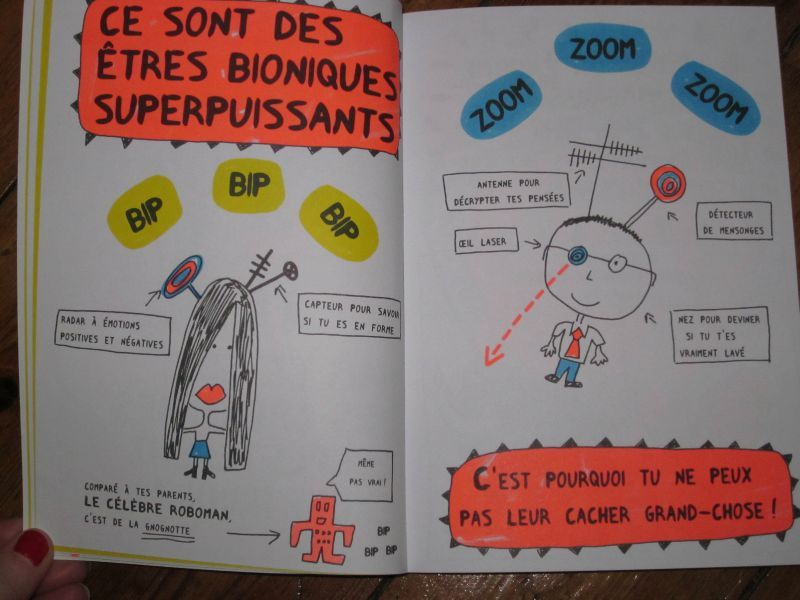 CE SONT DES
ÊTRES BIONIQUES
SUPERPUISSANTS
BIP
BIP
BIP
RADAR À ÉMOTIONS
POSITIVES ET NÉGATIVES
CAPTEUR POUR SAVOIR
SI TU ES EN FORME
COMPARÉ À TES PARENTS,
LE CÉLÈBRE ROBOMAN,
C'EST DE LA GNOGNOTTE
MÊME
PAS VRAI !
BIP
BIP BIP
ZOOM
ZOOM
ZOOM
ANTENNE POUR
DÉCRYPTER TES PENSÉES
DÉTECTEUR
DE MENSONGES
ŒIL LASER
NEZ POUR DEVINER
SI TU T'ES
VRAIMENT LAVÉ
C'EST POURQUOI TU NE PEUX
PAS LEUR CACHER GRAND-CHOSE !